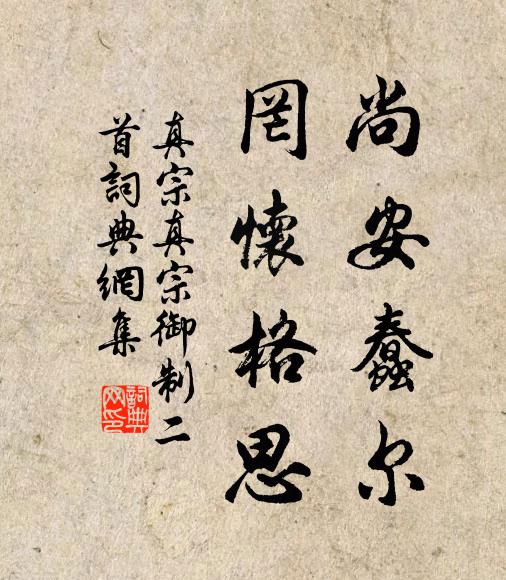 尚安蠢尔
罔怀格思
真宗真宗御制二
首詞典網集
詞典
网印